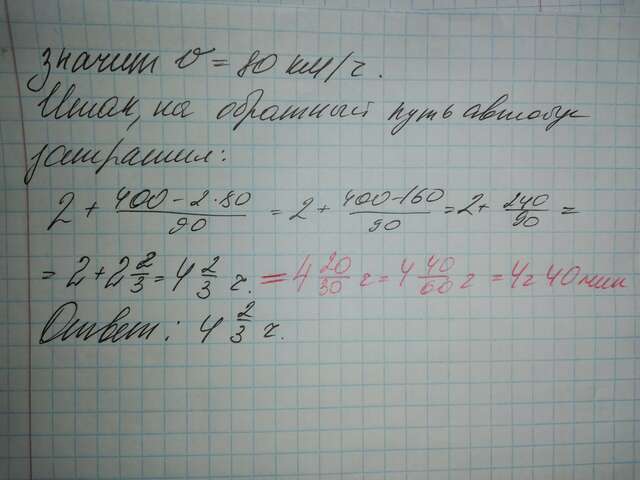 значит v = 80 км/ч.
Итак, на обратный путь автобус
затратил:
2 + \frac{400 - 2 \cdot 80}{90} = 2 + \frac{400-160}{90} = 2 + \frac{240}{90} =
= 2 + 2 \frac{2}{3} = 4 \frac{2}{3} ч. = 4 \frac{20}{30} ч = 4 \frac{40}{60} ч = 4ч 40мин
Ответ: 4 \frac{2}{3} ч.